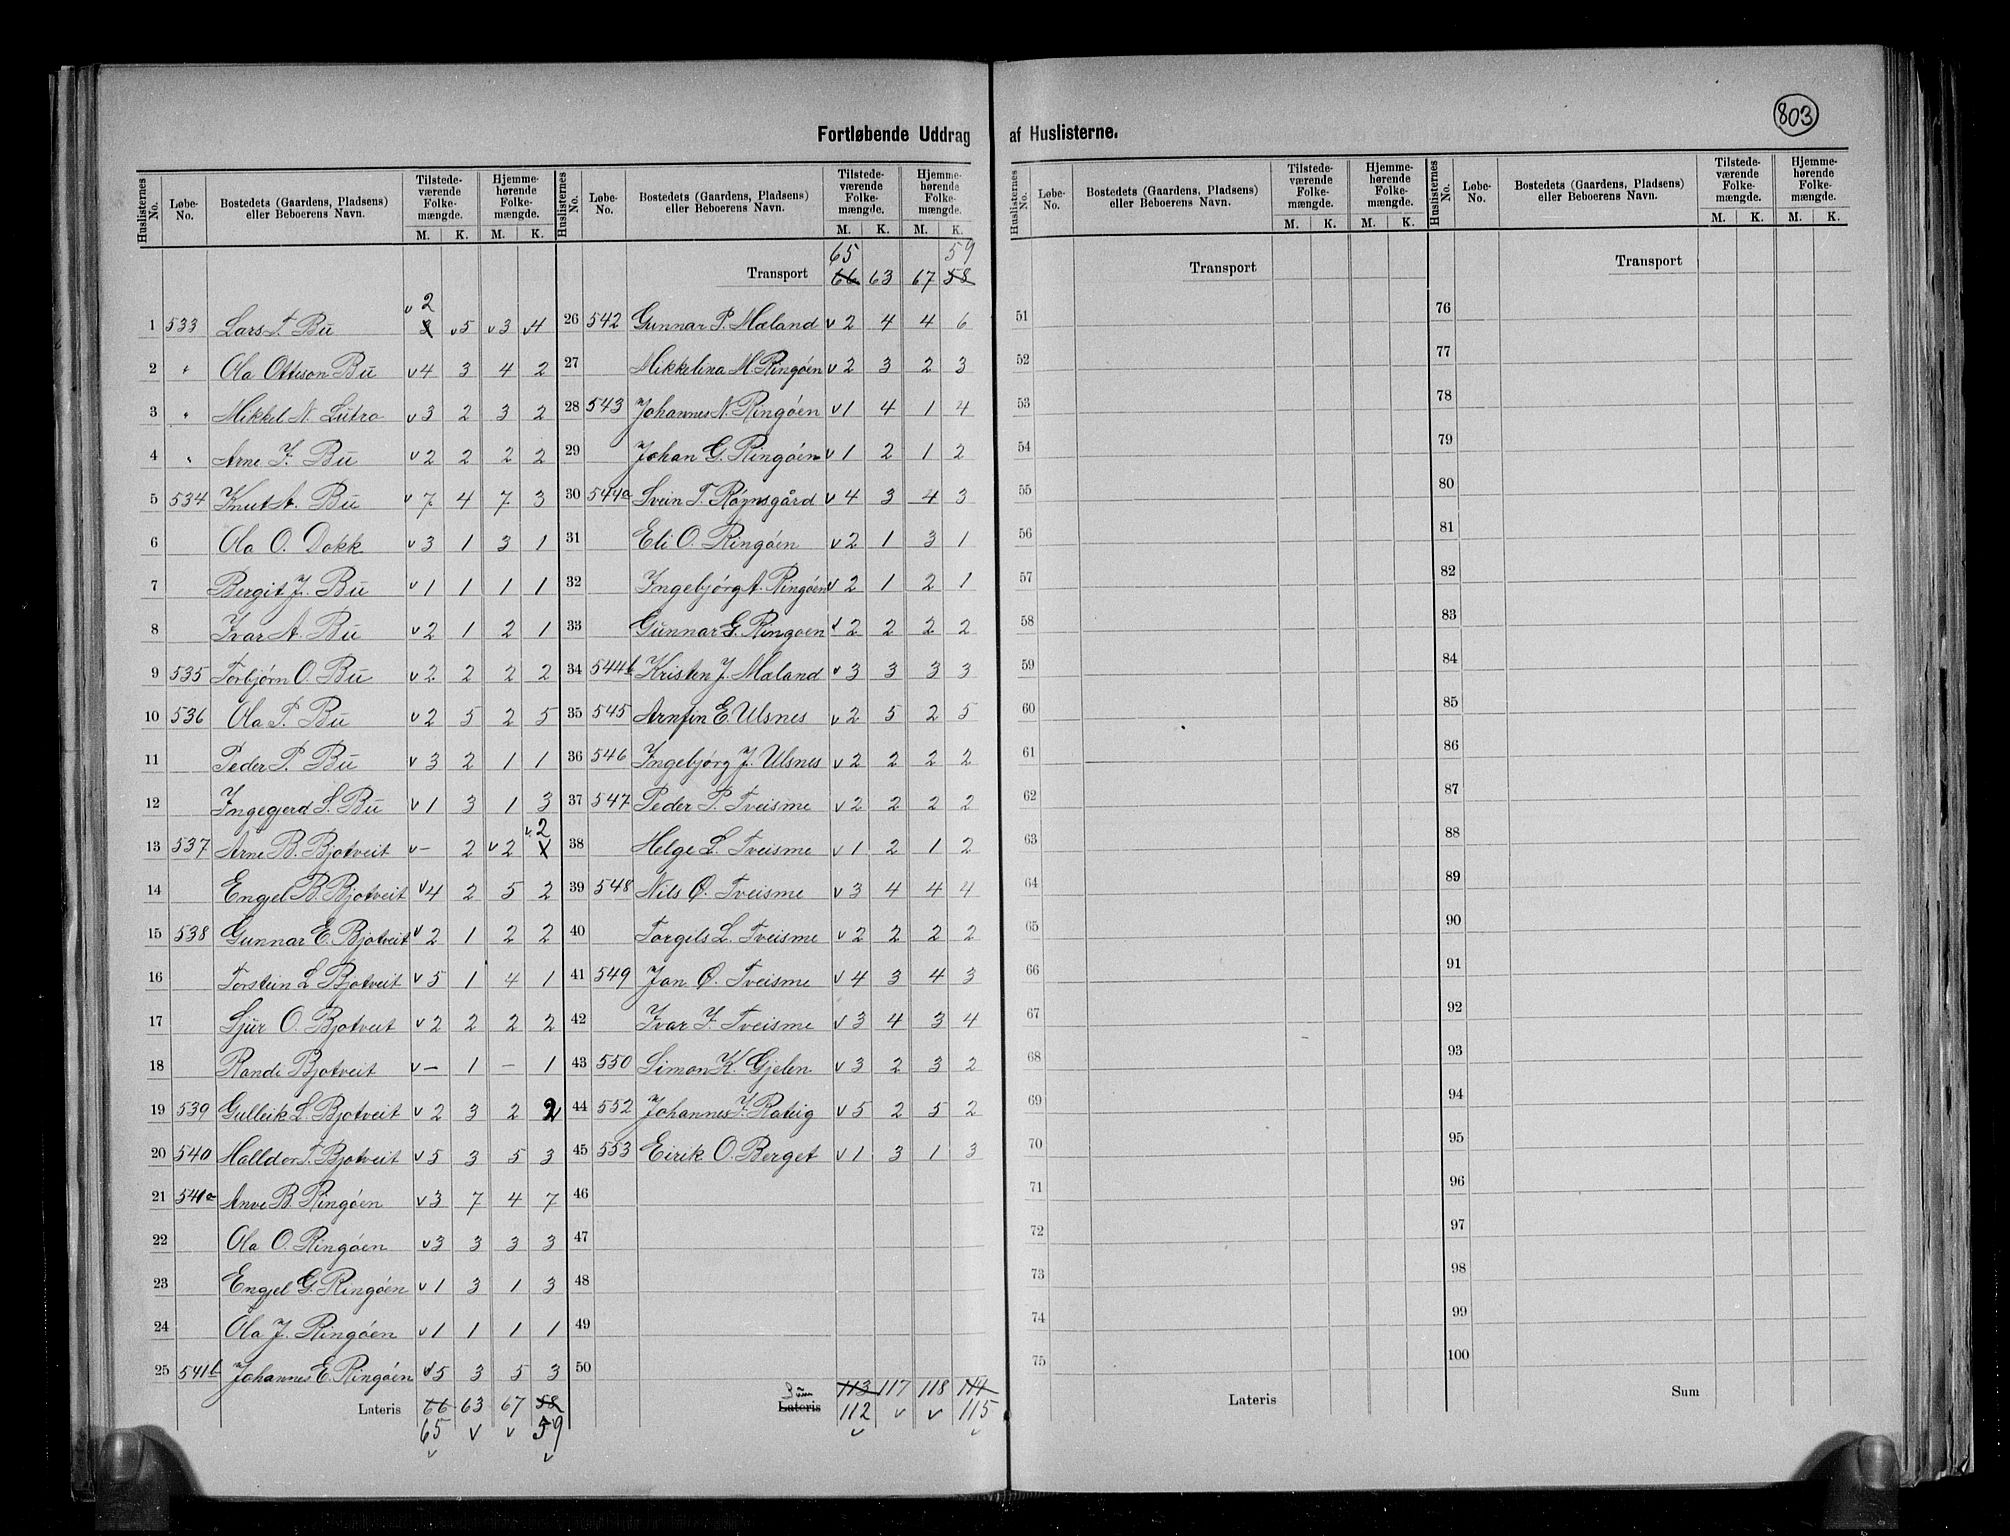 803
Fortløbende Uddrag af Huslisterne.
Huslisternes No. Løbe-No. Bostedets (Gaardens, Pladsens) eller Beboerens Navn. Tilstede-værende Folke-mængde. M. K. Hjemme-hørende Folke-mængde. M. K.
1 533 Lars T Bu v 2 3 v5 v3 v4
2 " Ola Otteson Bu v4 3 4 2
3 " Mikkel N. Lutro v3 2 3 2
4 " Arne J. Bu v2 2 2 2
5 534 Knut A. Bu v7 4 7 3
6 Ola O. Dokk v3 1 3 1
7 Bergit J. Bu v1 1 1 1
8 Ivar A. Bu v2 1 2 1
9 535 Torbjørn O. Bu v2 2 2 2
10 536 Ola P. Bu v2 5 2 5
11 Peder P. Bu v3 2 1 1
12 Ingegjerd S. Bu v1 3 1 3
13 537 Arne B. Bjotveit v- 2 v2 v.2
14 Engel B. Bjotveit v4 2 5 2
15 538 Gunnar E. Bjotveit v2 1 2 2
16 Torstein L Bjotveit v5 1 4 1
17 Sjur O. Bjotveit v2 2 2 2
18 Randi Bjotveit v- 1 - 1
19 539 Gulleik L. Bjotveit v2 3 2 2
20 540 Halldor T. Bjotveit v5 3 5 3
21 541a Arne B. Ringøen v3 7 4 7
22 Ola O. Ringøen v3 3 3 3
23 Engel G. Ringøen v1 3 1 3
24 Ola J. Ringøen v1 1 1 1
25 541b Johannes E. Ringøen v5 3 5 3
Lateris 66 63 67 58
65 v v 59
v v
Huslisternes No. Løbe-No. Bostedets (Gaardens, Pladsens) eller Beboerens Navn. Tilstede-værende Folke-mængde. M. K. Hjemme-hørende Folke-mængde. M. K.
65 59
Transport 66 63 67 58
26 542 Gunnar P. Mæland v2 4 4 6
27 Mikkelina M. Ringøen v2 3 2 3
28 543 Johannes N. Ringøen v1 4 1 4
29 Johan G. Ringøen v1 2 1 2
30 544a Svein T. Røynsgård v4 3 4 3
31 Eli O. Ringøen v2 1 3 1
32 Ingebjørg A. Ringøen v2 1 2 1
33 Gunnar G. Ringøen v2 2 2 2
34 544b Kristen J. Mæland v3 3 3 3
35 545 Arnfin E. Ulsnes v2 5 2 5
36 546 Ingebjørg J. Ulsnes v2 2 2 2
37 547 Peder P. Tveisme v2 2 2 2
38 Helge L. Tveisme v1 2 1 2
39 548 Nils O. Tveisme v3 4 4 4
40 Torgils L. Tveisme v2 2 2 2
41 549 Jon O. Tveisme v4 3 4 3
42 Ivar J. Tveisme v3 4 3 4
43 550 Simon K. Gjelen v3 2 3 2
44 552 Johannes J. v5 2 5 2
45 553 Eirik O. Berget v1 3 1 3
46
47
48
49
50
Sum 113 117 118 114
Lateris 112 v v 115
v v
Huslisternes No. Løbe-No. Bostedets (Gaardens, Pladsens) eller Beboerens Navn. Tilstede-værende Folke-mængde. M. K. Hjemme-hørende Folke-mængde. M. K.
Transport
51
52
53
54
55
56
57
58
59
60
61
62
63
64
65
66
67
68
69
70
71
72
73
74
75
Lateris
Huslisternes No. Løbe-No. Bostedets (Gaardens, Pladsens) eller Beboerens Navn. Tilstede-værende Folke-mængde. M. K. Hjemme-hørende Folke-mængde. M. K.
Transport
76
77
78
79
80
81
82
83
84
85
86
87
88
89
90
91
92
93
94
95
96
97
98
99
100
Sum